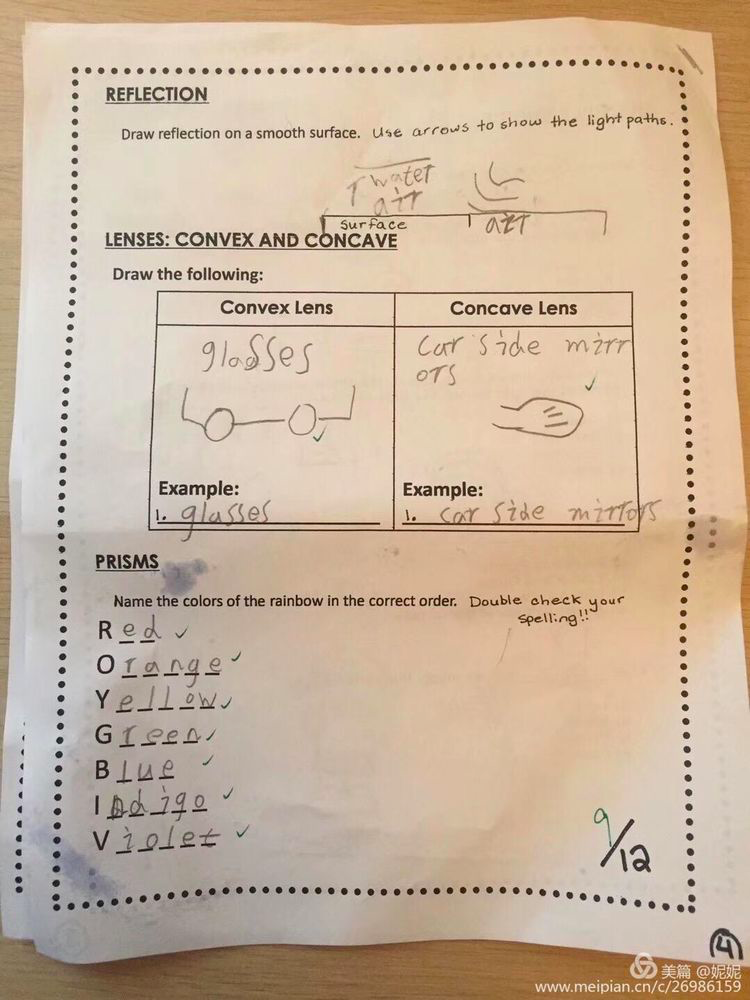 REFLECTION
Draw reflection on a smooth surface. Use arrows to show the light paths.
water
air
surface
air
LENSES: CONVEX AND CONCAVE
Draw the following:
Convex Lens
Concave Lens
glasses
car side mirr
ors
Example:
Example:
1. glasses
1. car side mirrors
PRISMS
Name the colors of the rainbow in the correct order. Double check your
spelling!!
Red
Orange
Yellow
Green
Blue
Indigo
Violet
9/12
4
美篇 @妮妮
www.meipian.cn/c/26986159